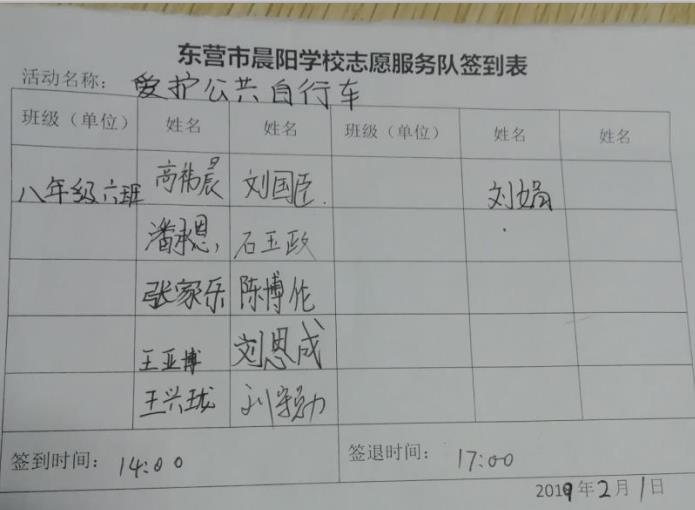 东营市晨阳学校志愿服务队签到表
活动名称：爱护公共自行车
班级（单位） 姓名 姓名 班级（单位） 姓名 姓名
八年级六班 高祎晨 刘国臣 刘娟
潘承恩 石玉政
张家乐 陈博伦
王亚博 刘恩成
王兴珑 刘守勋
签到时间：14:00 签退时间：17:00
2019年2月1日